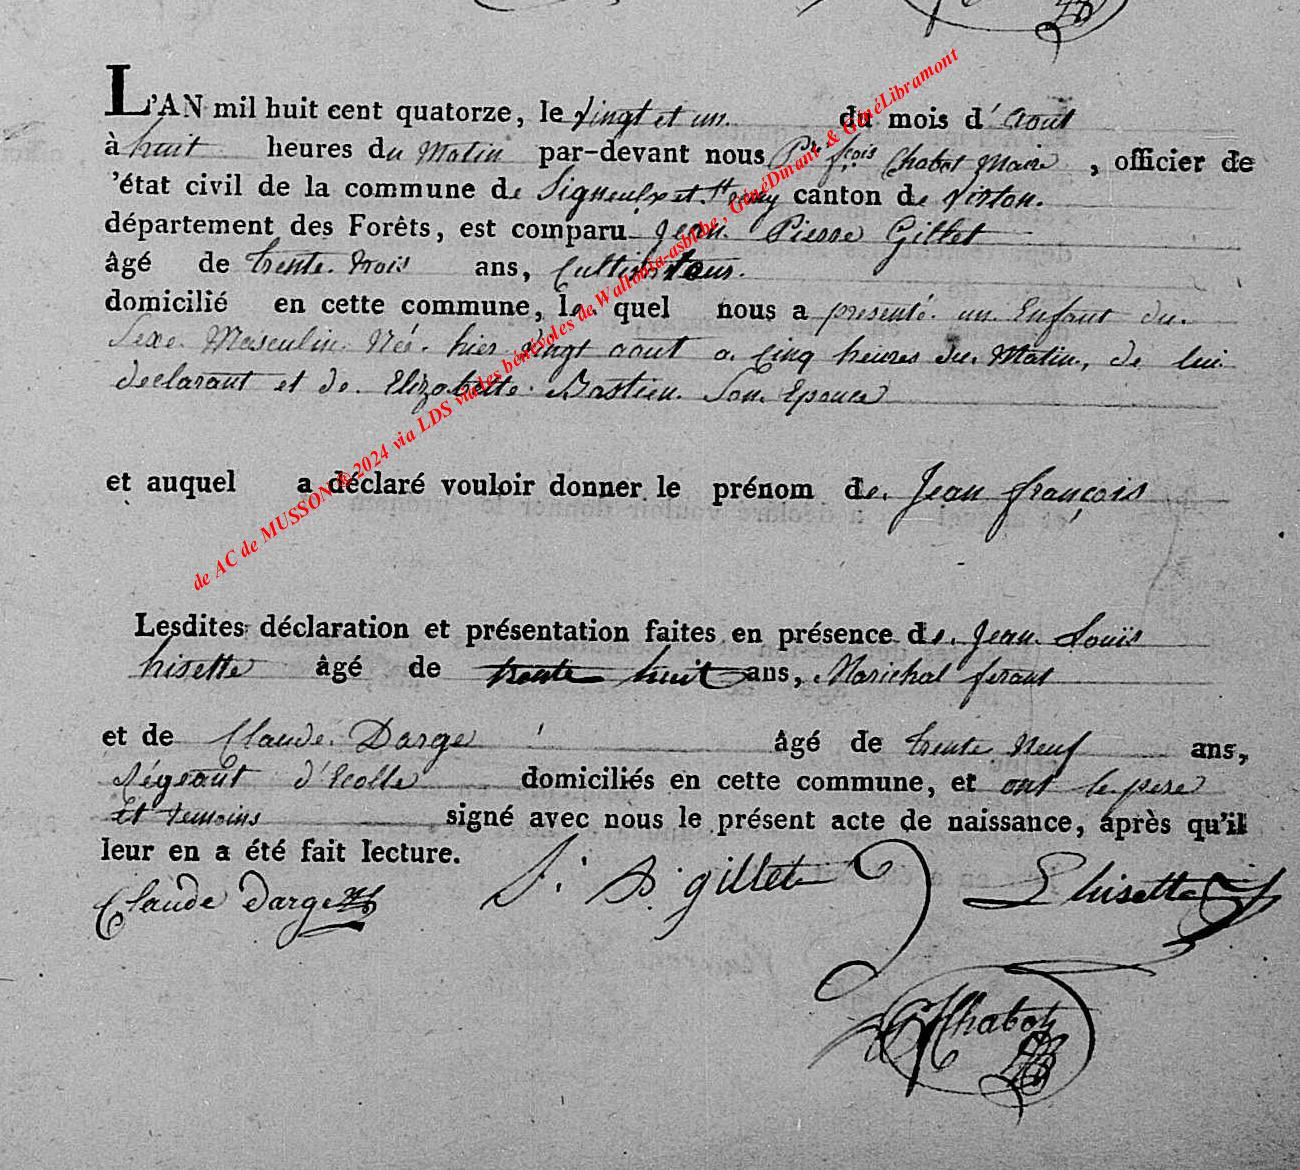 L'AN mil huit cent quatorze, le vingt et un du mois d'aout
à huit heures du Matin par-devant nous Pre fçois Chabot Maire, officier de
'état civil de la commune de Signeulx et St remy canton de Virton.
département des Forêts, est comparu Jean Pierre Gillet
âgé de trente trois ans, Cultivateur.
domicilié en cette commune, le quel nous a presenté un Enfant du
Sexe Masculin Née hier vingt aout a Cinq heures du Matin, de lui
declarant et de Elizabette Bastien Son Epouce
et auquel a déclaré vouloir donner le prénom de Jean françois
Lesdites déclaration et présentation faites en présence de Jean Louis
hisette âgé de trente huit ans, Marichal ferant
et de Claude Darge âgé de trente Neuf ans,
Régeant d'Ecolle domiciliés en cette commune, et ont le pere
Et temoins signé avec nous le présent acte de naissance, après qu'il
leur en a été fait lecture.
Claude Darge J. P. gillet L hisette
Chabot
de AC de MUSSON © 2024 via LDS via les bénévoles de Wallonia-asbl.be, GénéDinant & GénéLibramont